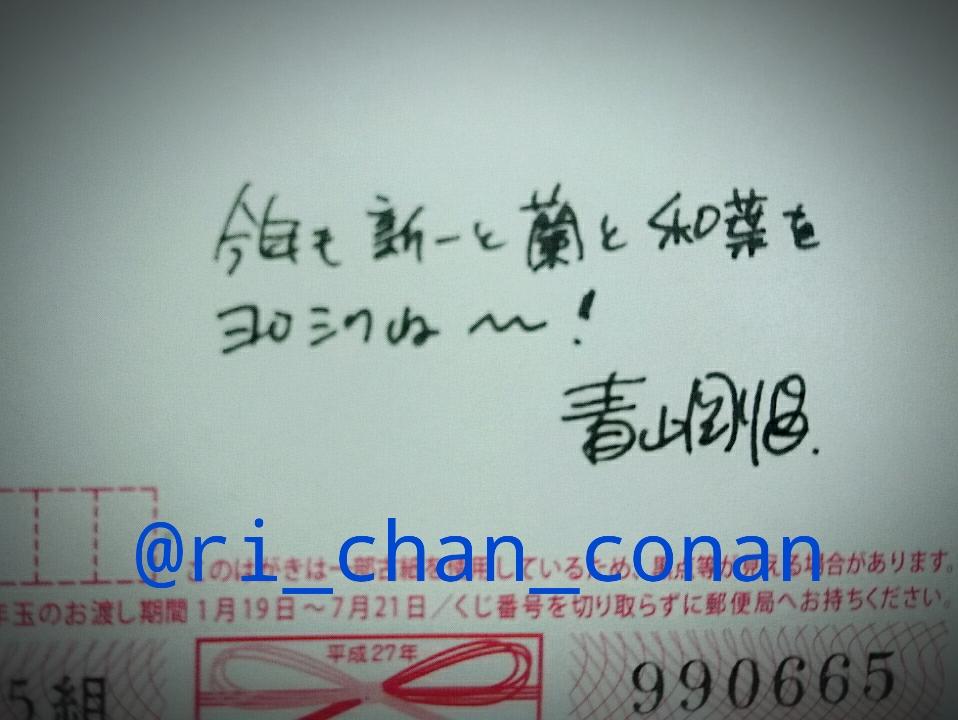 今年も新一と蘭と和葉を
ヨロシクね〜!
青山剛昌.
@ri_chan_conan
このはがきは一部古紙を使用しているため、黒点等が見える場合があります。
年玉のお渡し期間1月19日〜7月21日／くじ番号を切り取らずに郵便局へお持ちください。
平成27年
5組
990665